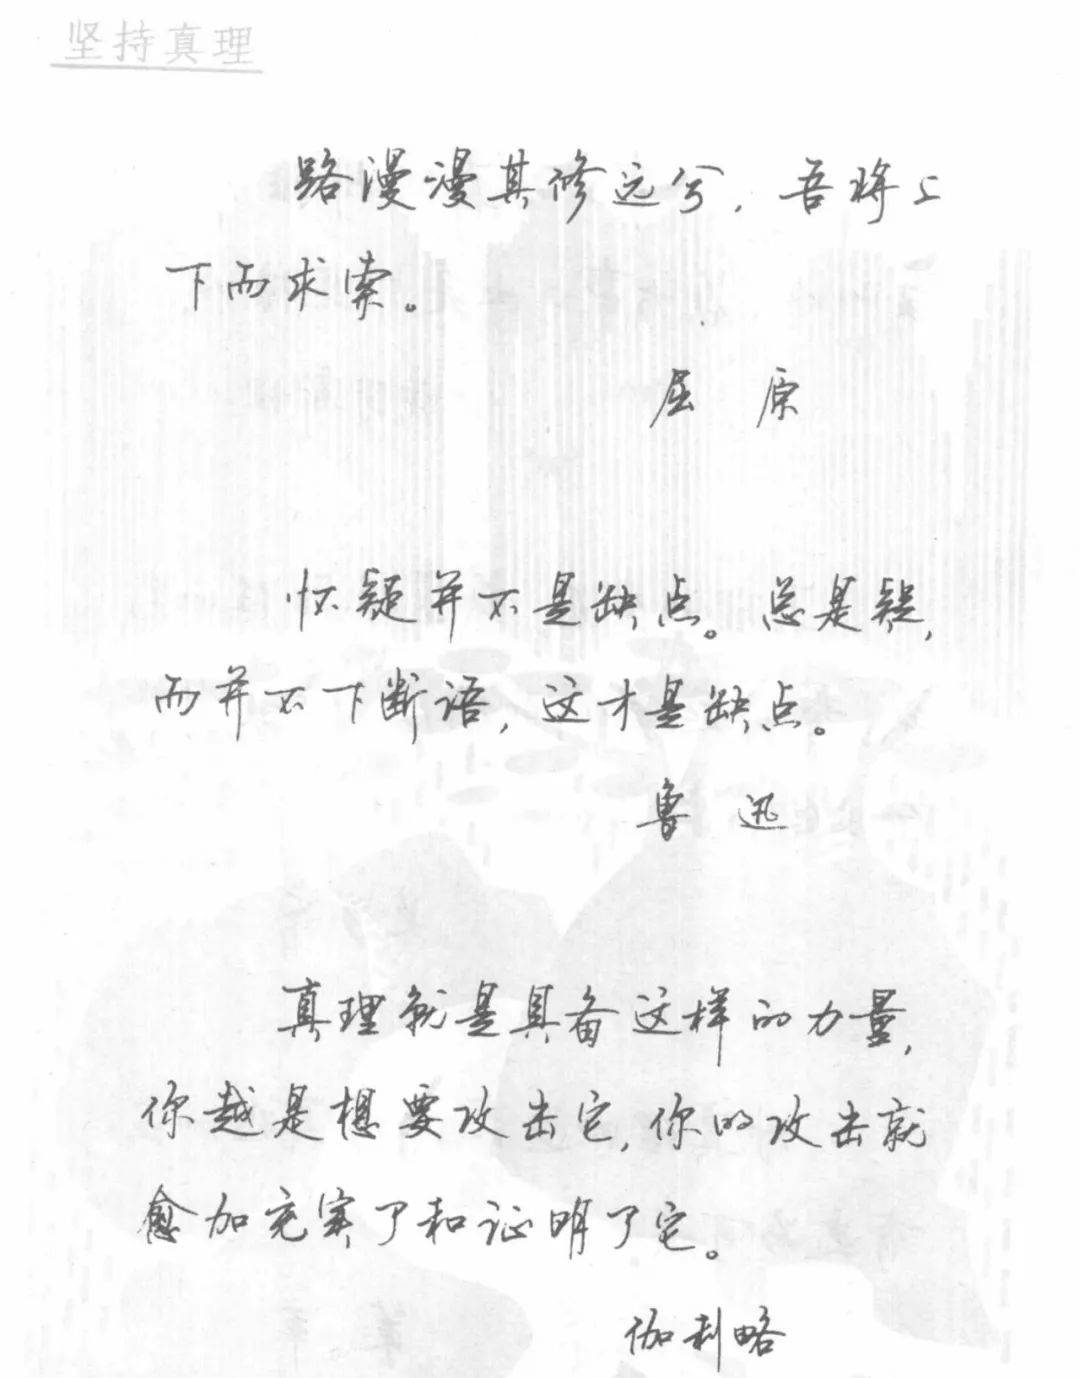 坚持真理
路漫漫其修远兮，吾将上
下而求索。
屈 原
怀疑并不是缺点。总是疑，
而并不下断语，这才是缺点。
鲁 迅
真理就是具备这样的力量，
你越是想要攻击它，你的攻击就
愈加充实了和证明了它。
伽利略